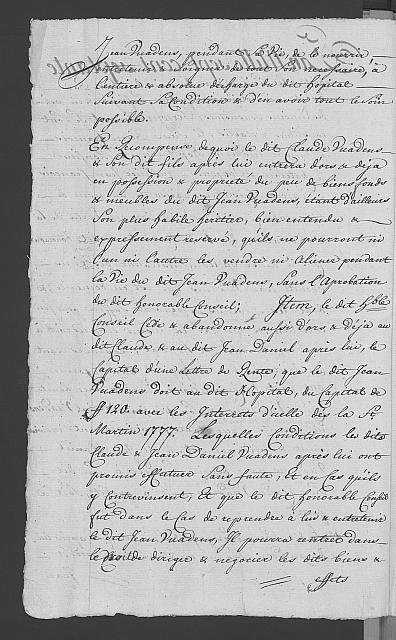 Jean Vuadens, pendant sa Vie, de le nourrir
entretenir & soigner de tout son necessaire, à
l'entiere & absolue décharge du dit hôpital
suivant sa Condition & d'en avoir tout le soin
possible.
En Recompense dequoi le dit Claude Vuadens
& Son dit fils après lui entrera dors & déja
en possession & proprieté du peu de biens fonds
& meubles du dit Jean Vuadens, étant d'ailleurs
son plus habile héritier, bien entendu &
expressement reservé, qu'ils ne pourront ni
l'un ni l'autre les vendre ni aliener pendant
la Vie du dit Jean Vuadens, sans l'Aprobation
du dit honorable Conseil; Item, le dit hble
Conseil Cède & abandonne aussi d'ors & déja au
dit Claude & au dit Jean Daniel après lui, le
Capital d'une Lettre de Rente, que le dit Jean
Vuadens doit au dit hôpital, du Capital de
ff 120. avec les Interrets d'icelle dès la St
Martin 1777. Lesquelles Conditions les dits
Claude & Jean Daniel Vuadens après lui ont
promis effectuer sans faute, et en cas qu'ils
y contrevinsent, et que le dit honorable Conseil
fut dans le Cas de reprendre à lui & entretenir
le dit Jean Vuadens, Il pourra rentrer dans
le Droit de diriger & negocier les dits biens &
effets